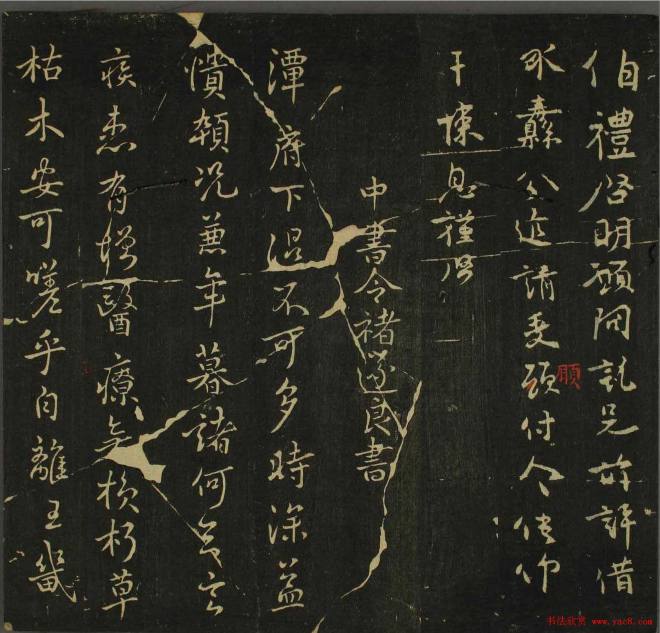 伯禮啓明願託兄許詳借
纛公近請更頭付人使仰
干悚息謹啓
中書令褚遂良書
潭府下濕不可多時深益
憒頓況兼年暮諸何足言
疾患有增醫療無損朽草
枯木安可嗟乎自離王畿
书法欣赏 www.yac8.com